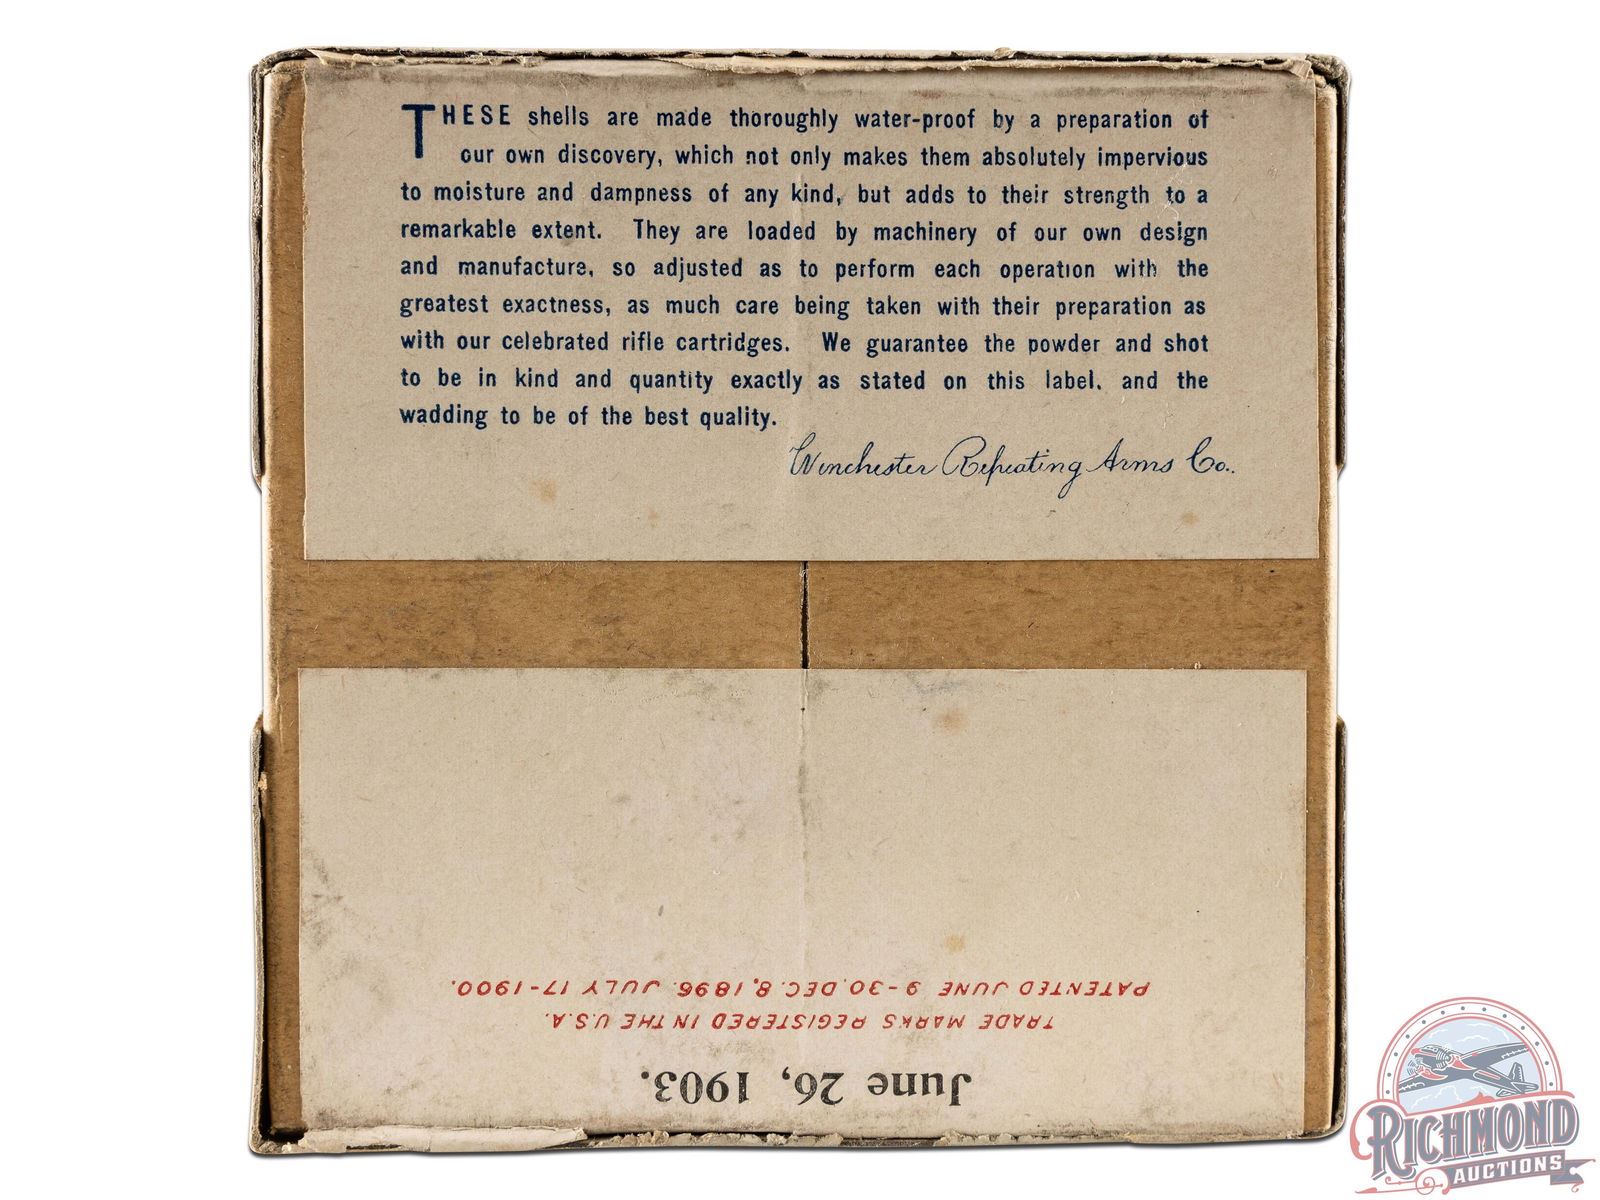 THESE shells are made thoroughly water-proof by a preparation of
our own discovery, which not only makes them absolutely impervious
to moisture and dampness of any kind, but adds to their strength to a
remarkable extent. They are loaded by machinery of our own design
and manufacture, so adjusted as to perform each operation with the
greatest exactness, as much care being taken with their preparation as
with our celebrated rifle cartridges. We guarantee the powder and shot
to be in kind and quantity exactly as stated on this label, and the
wadding to be of the best quality.
Winchester Repeating Arms Co.
June 26, 1903.
TRADE MARKS REGISTERED IN THE U.S.A.
PATENTED JUNE 9-30. DEC. 8, 1896. JULY 17-1900.
RICHMOND
AUCTIONS